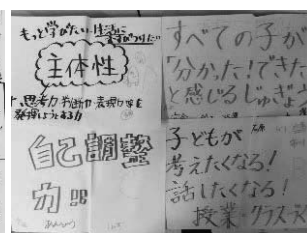 もっと学びたい！
主体性
思考力 判断力 表現力等を
発揮しようとする力
自己調整
力!!
すべての子が
「分かった！できた
と感じるじゅぎょう
子どもが
考えたくなる！
話したくなる！
授業・クラス